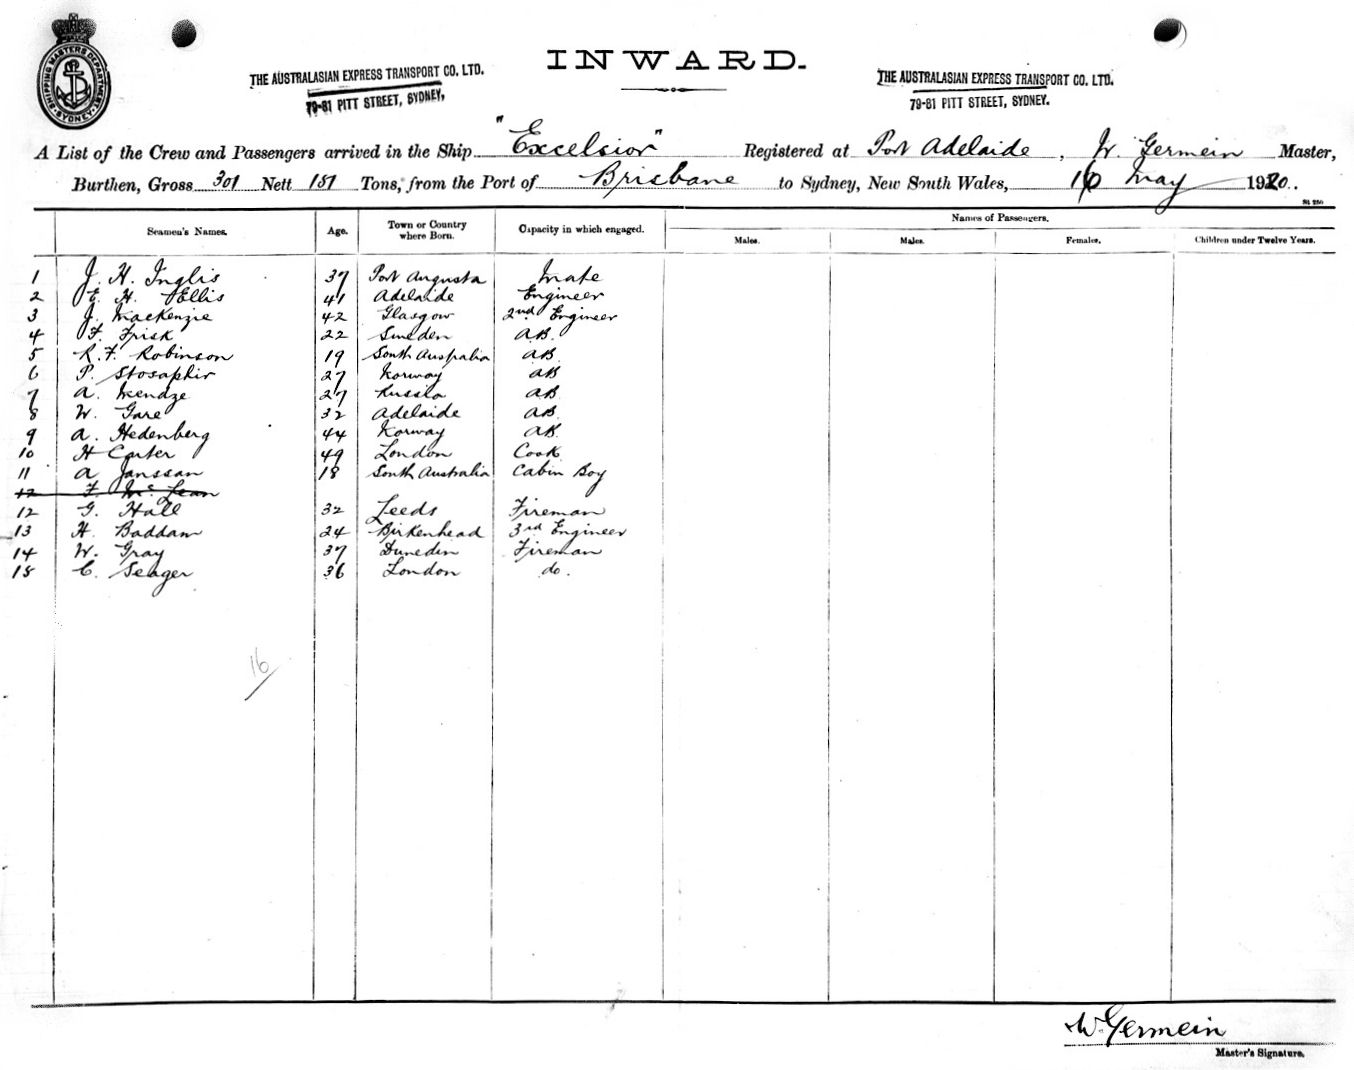 SHIPPING MASTERS DEPARTMENT SYDNEY
INWARD.
THE AUSTRALASIAN EXPRESS TRANSPORT CO. LTD.
79-81 PITT STREET, SYDNEY,
THE AUSTRALASIAN EXPRESS TRANSPORT CO. LTD.
79-81 PITT STREET, SYDNEY.
A List of the Crew and Passengers arrived in the Ship "Excelsior" Registered at Port Adelaide, W. Germein Master,
Burthen, Gross 301 Nett 151 Tons, from the Port of Brisbane to Sydney, New South Wales, 16 May 1920.
Seamen's Names. Age. Town or Country where Born. Capacity in which engaged. Names of Passengers.
Males. Males. Females. Children under Twelve Years.
1 J. H. Inglis 37 Port Augusta Mate
2 E. H. Ellis 41 Adelaide Engineer
3 J. Mackenzie 42 Glasgow 2nd Engineer
4 F. Frisk 22 Sweden AB.
5 R. F. Robinson 19 South Australia AB
6 P. 27 Norway AB
7 A. 27 Russia AB
8 W. Gare 32 Adelaide AB.
9 A. Hedenberg 44 Norway AB.
10 H Carter 49 London Cook
11 A Janssan 18 South Australia Cabin Boy
12 F. McLean
12 G. Hall 32 Leeds Fireman
13 H. Baddam 24 Birkenhead 3rd Engineer
14 W. Gray 37 Dunedin Fireman
15 C. Seager 36 London do.
16
W. Germein
Master's Signature.